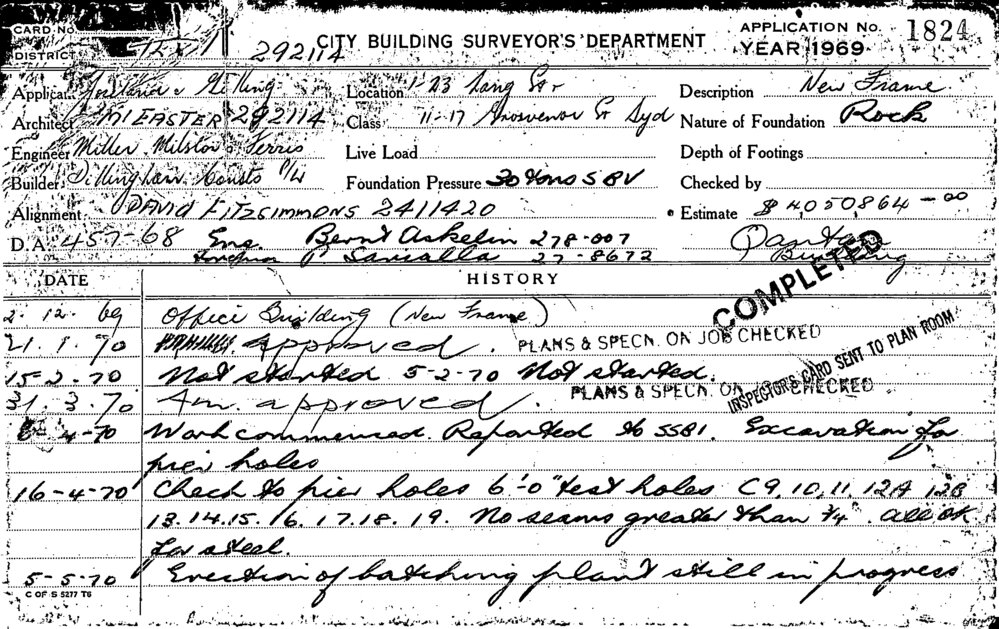 CARD No.
DISTRICT
292114
CITY BUILDING SURVEYOR'S DEPARTMENT
APPLICATION No. 1824
YEAR 1969
Location 1-23 Lang St
Description New Frame
Architect McEASTER 292114
Class 11-17 Grosvenor St Syd
Nature of Foundation Rock
Engineer Miller Milston & Ferris
Live Load
Depth of Footings
Builder Dillingham Consts P/L
Foundation Pressure 30 tons SBV
Checked by
Alignment DAVID FITZSIMMONS 2411420
Estimate $4,050864-00
D.A. 457-68 Eng. Bernt Askelin 278-007
Foreman P. 27-8672
COMPLETED
DATE HISTORY
2.12.69 Office Building (New Frame)
21.1.70 Approved. PLANS & SPECN. ON JOB CHECKED
15-2-70 Not started 5-2-70 Not started.
INSPECTOR'S CARD SENT TO PLAN ROOM
31.3.70 Am. approved. PLANS & SPECN. ON JOB CHECKED
4-70 Work commenced. Reported to SSBI. Excavation for
pier holes
16-4-70 Check to pier holes 6'-0" test holes C9, 10, 11, 12A 12B
13.14.15.16.17.18.19. No seams greater than ¼" all ok
for steel.
5-5-70 Erection of batching plant still in progress
C OF S 5277 T6